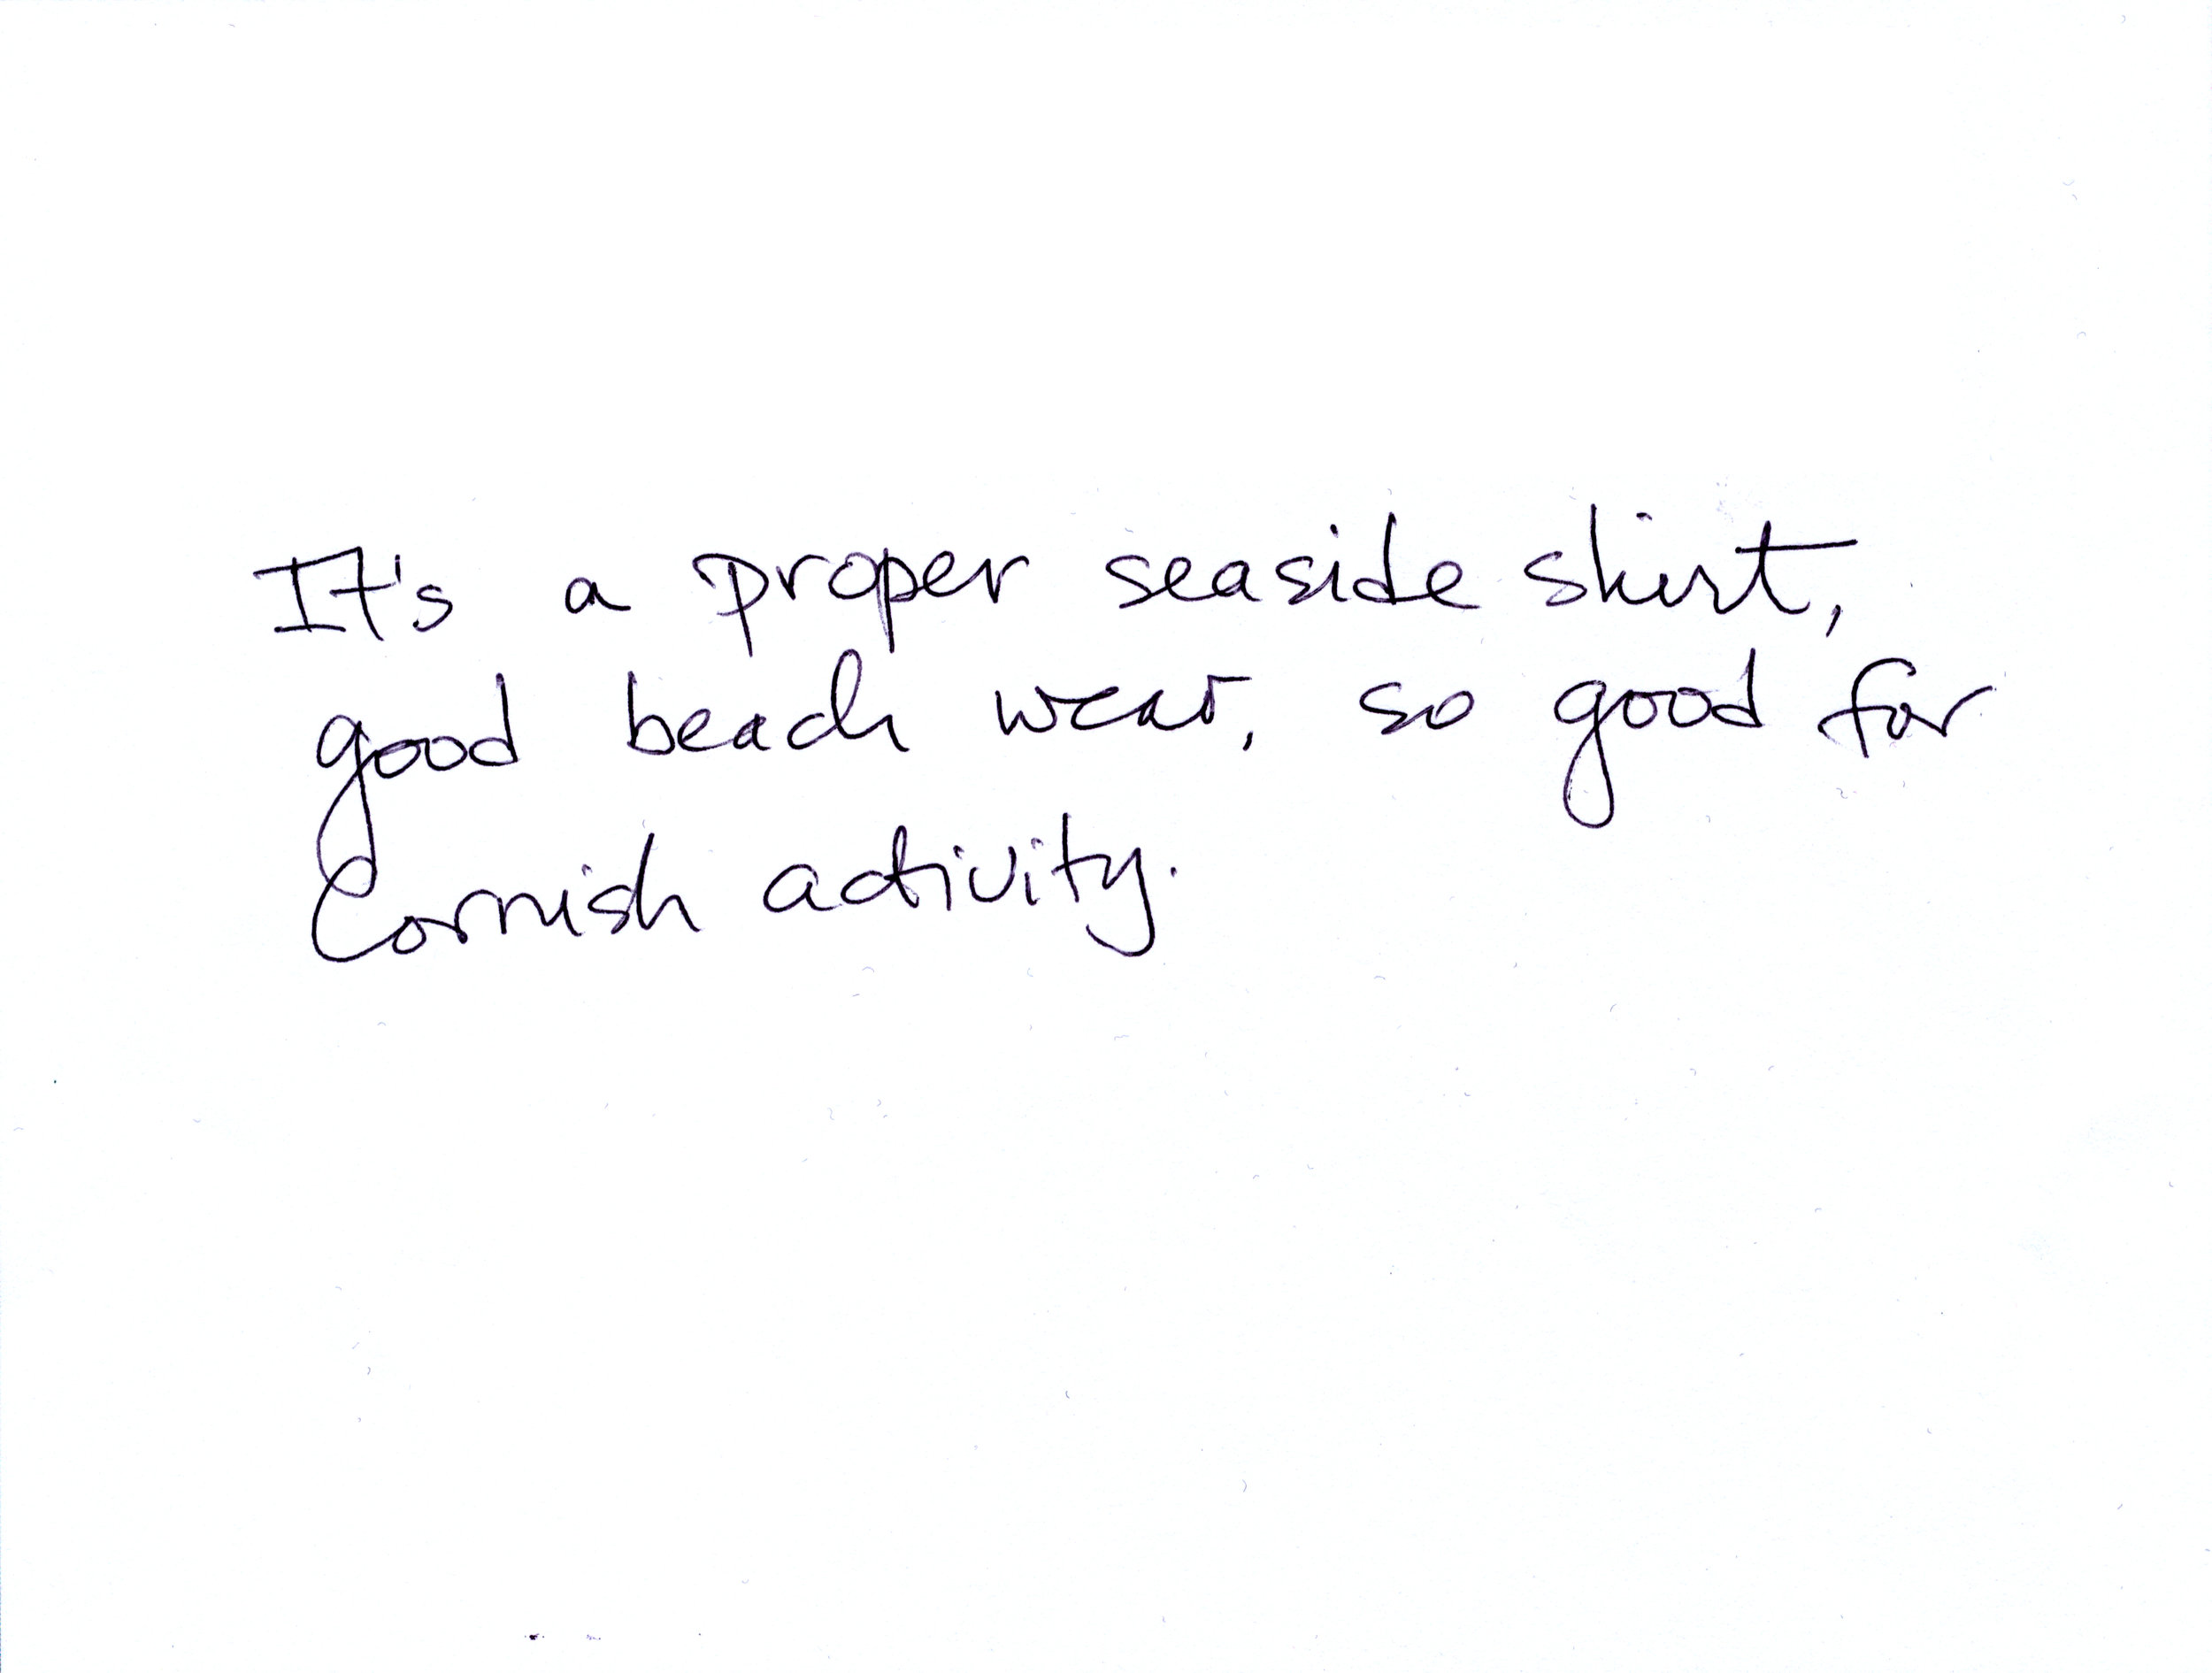 It's a proper seaside shirt,
good beach wear, so good for
Cornish activity.